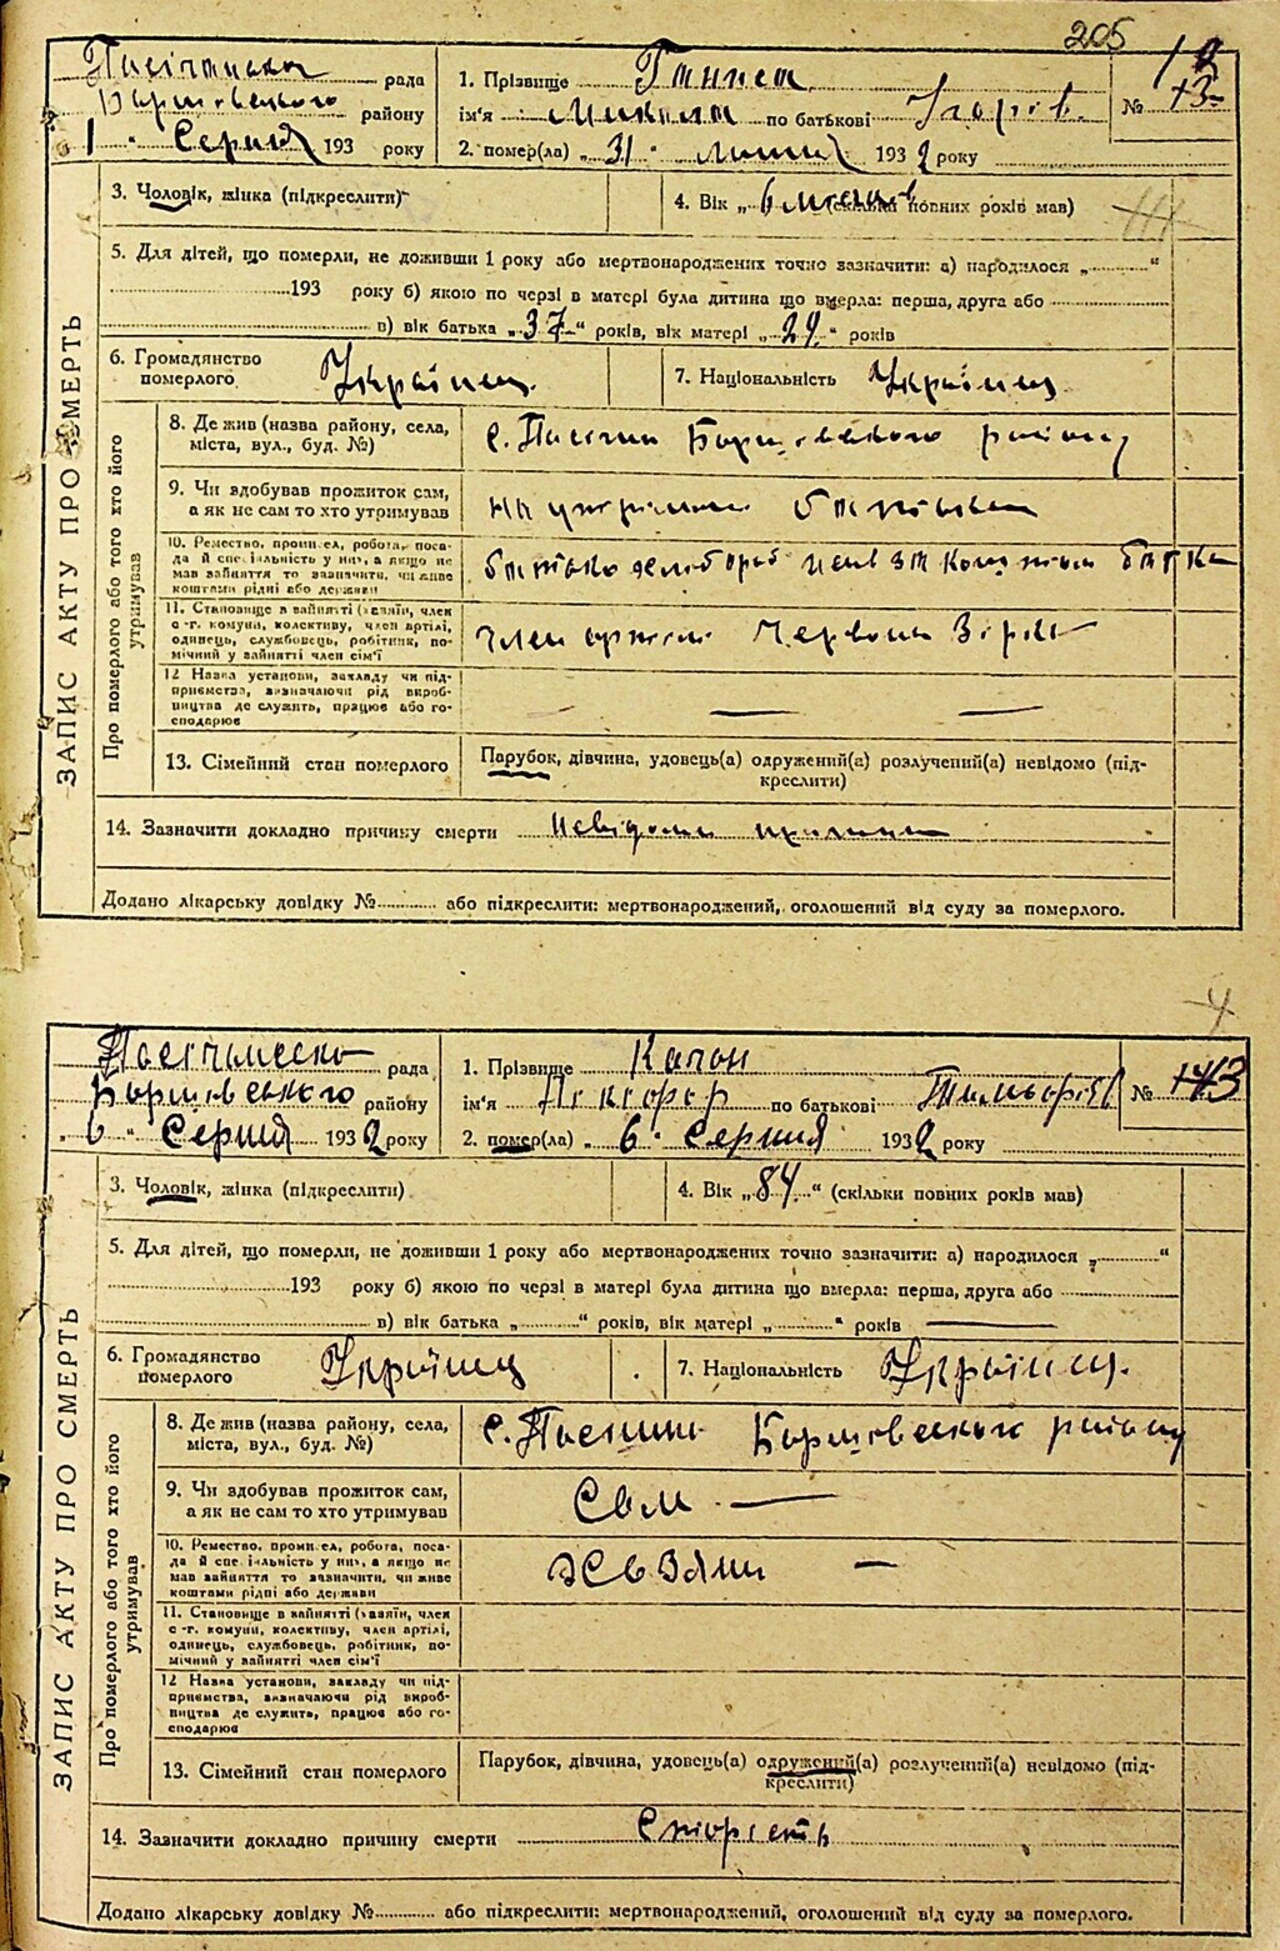 205
рада
1. Прізвище
району
ім'я Микита по батькові
№
1 Серпня 193 року
2. помер(ла) „31" липня 1932 року
3. Чоловік, жінка (підкреслити)
4. Вік „6 місяців (скільки повних років мав)
5. Для дітей, що померли, не доживши 1 року або мертвонароджених точно зазначити: а) народилося „ "
193 року б) якою по черзі в матері була дитина що вмерла: перша, друга або
в) вік батька „37" років, вік матері „29" років
6. Громадянство померлого Українец
7. Національність Українец
ЗАПИС АКТУ ПРО СМЕРТЬ
Про померлого або того хто його утримував
8. Де жив (назва району, села,
міста, вул., буд. №)
с. Пасічни Борщовського району
9. Чи здобував прожиток сам,
а як не сам то хто утримував
на утриманні батька
10. Ремество, промисел, робота, поса-
да й спеціяльність у них, а якщо не
мав зайняття то зазначити, чи живе
коштами рідні або держави
батько хлібороб
11. Становище в зайнятті (хазяїн, член
с.-г. комуни, колективу, член артілі,
одинець, службовець, робітник, по-
мічний у зайнятті член сім'ї
член артілі Червона Зірка
12 Назва установи, закладу чи під-
приємства, визначаючи рід вироб-
ництва де служить, працює або го-
сподарює
— — —
13. Сімейний стан померлого
Парубок, дівчина, удовець(а) одружений(а) розлучений(а) невідомо (під-
креслити)
14. Зазначити докладно причину смерти Невідома
Додано лікарську довідку № або підкреслити: мертвонароджений, оголошений від суду за померлого.
4
рада
1. Прізвище Качон
Борщовського району
ім'я по батькові
№ 43
„6" Серпня 1932 року
2. помер(ла) „6" Серпня 1932 року
3. Чоловік, жінка (підкреслити)
4. Вік „84" (скільки повних років мав)
5. Для дітей, що померли, не доживши 1 року або мертвонароджених точно зазначити: а) народилося „ "
193 року б) якою по черзі в матері була дитина що вмерла: перша, друга або
в) вік батька „ " років, вік матері „ " років —
6. Громадянство померлого Українец
7. Національність Українец.
ЗАПИС АКТУ ПРО СМЕРТЬ
Про померлого або того хто його утримував
8. Де жив (назва району, села,
міста, вул., буд. №)
с. Пасічни Борщовського району
9. Чи здобував прожиток сам,
а як не сам то хто утримував
Сам —
10. Ремество, промисел, робота, поса-
да й спеціяльність у них, а якщо не
мав зайняття то зазначити, чи живе
коштами рідні або держави
—
11. Становище в зайнятті (хазяїн, член
с.-г. комуни, колективу, член артілі,
одинець, службовець, робітник, по-
мічний у зайнятті член сім'ї
12 Назва установи, закладу чи під-
приємства, визначаючи рід вироб-
ництва де служить, працює або го-
сподарює
13. Сімейний стан померлого
Парубок, дівчина, удовець(а) одружений(а) розлучений(а) невідомо (під-
креслити)
14. Зазначити докладно причину смерти Старість
Додано лікарську довідку № або підкреслити: мертвонароджений, оголошений від суду за померлого.